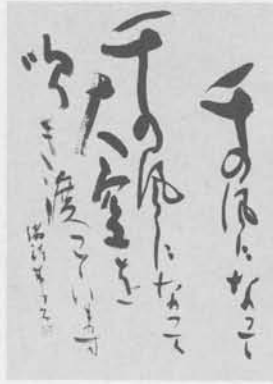 千の風に なって
千の風に なって
大空を
吹き渡っています